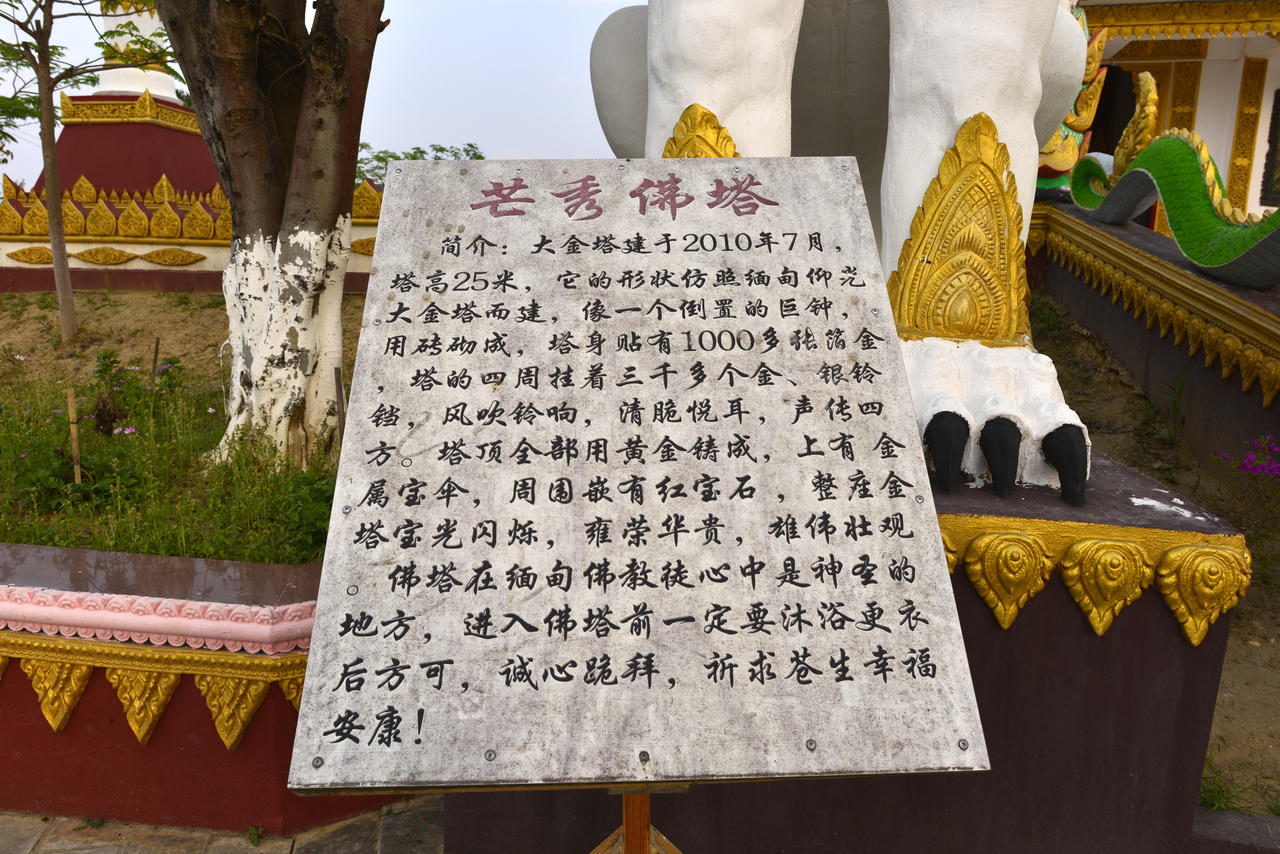 芒秀佛塔
简介：大金塔建于2010年7月，
塔高25米，它的形状仿照缅甸仰光
大金塔而建，像一个倒置的巨钟，
用砖砌成，塔身贴有1000多张箔金
，塔的四周挂着三千多个金、银铃
铛，风吹铃响，清脆悦耳，声传四
方。塔顶全部用黄金铸成，上有金
属宝伞，周围嵌有红宝石，整座金
塔宝光闪烁，雍荣华贵，雄伟壮观
。佛塔在缅甸佛教徒心中是神圣的
地方，进入佛塔前一定要沐浴更衣
后方可，诚心跪拜，祈求苍生幸福
安康！